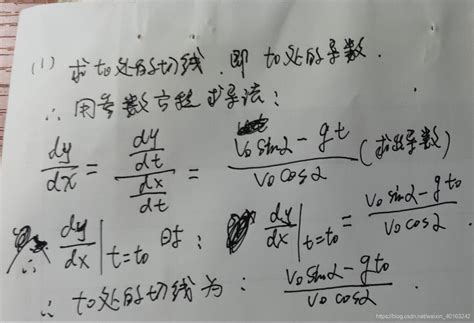 (1) 求t₀处的切线,即t₀处的导数.
∴用参数方程求导法:
dy/dx = (dy/dt)/(dx/dt) = (v₀sinα-gt)/(v₀cosα) (求出导数)
∴ dy/dx|t=t₀ 时: dy/dx|t=t₀ = (v₀sinα-gt₀)/(v₀cosα)
∴t₀处的切线为: (v₀sinα-gt₀)/(v₀cosα).
https://blog.csdn.net/weixin_40163242